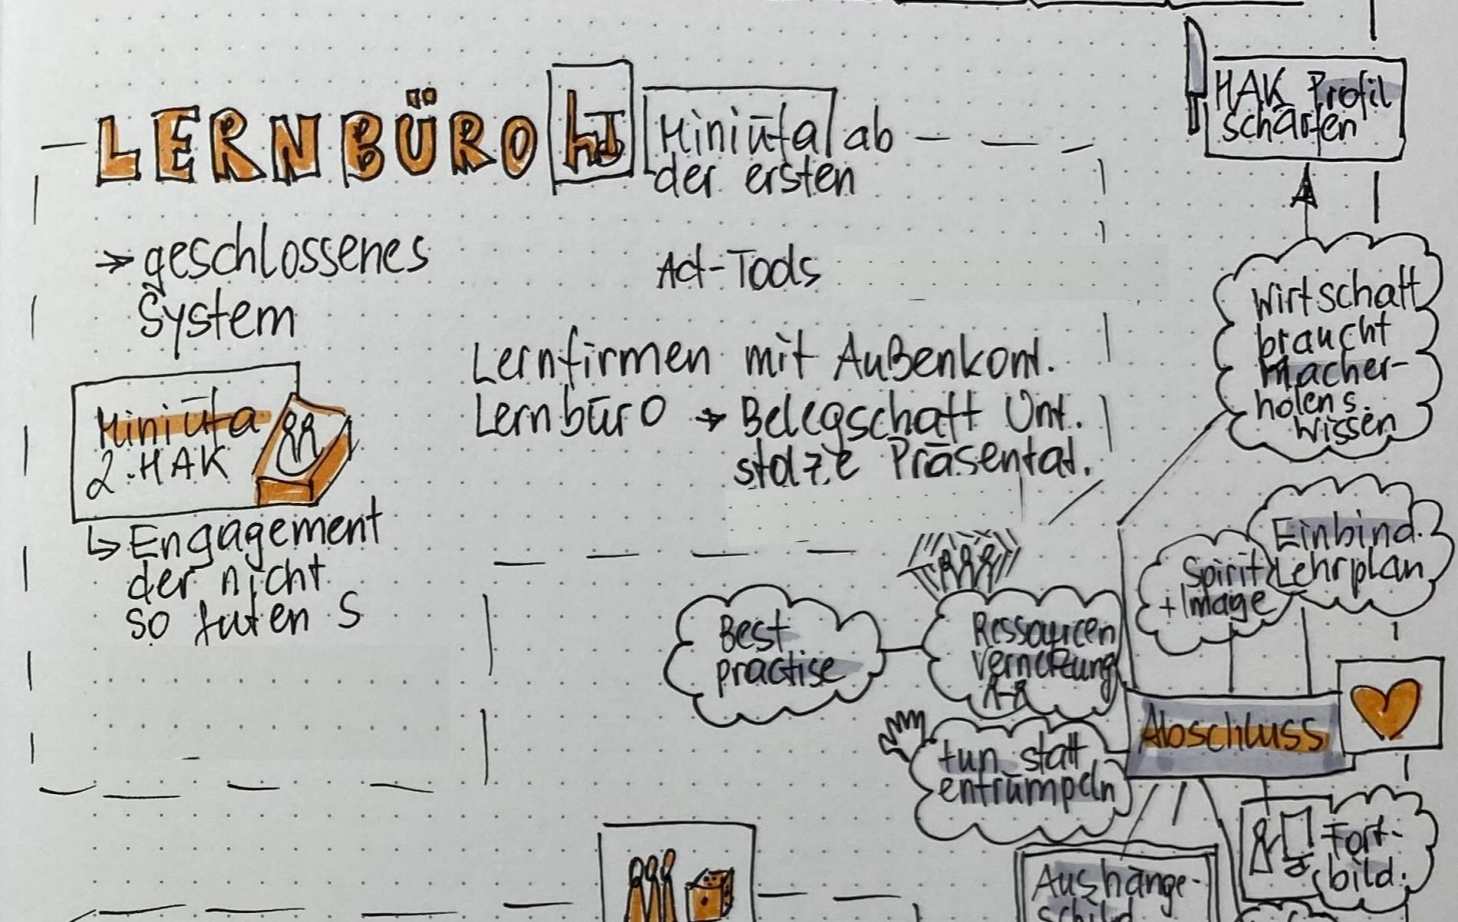 LERNBÜRO
Miniüfa ab
der ersten
→ geschlossenes
System
Act-Tools
Lernfirmen mit Außenkont.
Lernbüro → Belegschaft Unt.
stolze Präsentat.
Miniüfa
2.HAK
↳ Engagement
der nicht
so guten S
HAK Profil
schärfen
Wirtschaft
braucht
Macher-
holens.
Wissen
Einbind.
Lehrplan
Spirit
+ Image
Best
practise
Ressourcen
Vernetzung
tun statt
entrümpeln
Abschluss
Fort-
bild.
Aushänge-
schild